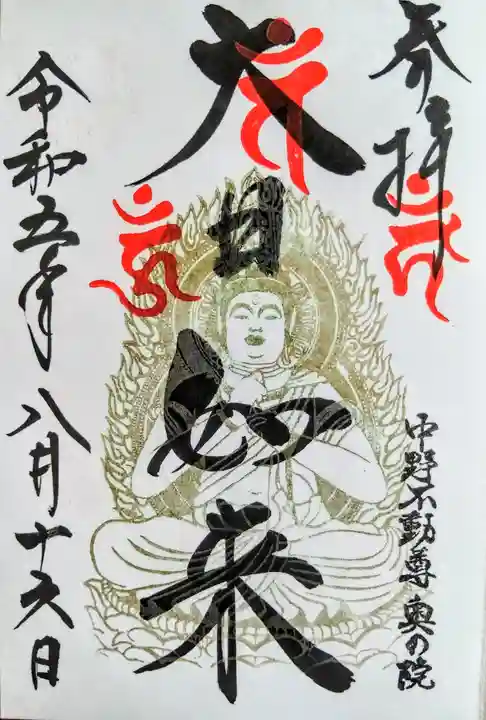 奉拝
大日如来
中野不動尊 奥の院
令和五年 八月十六日